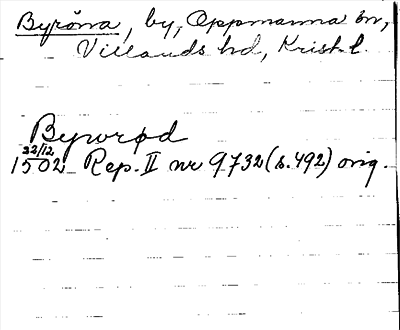 Byröna, by, Oppmanna sn,
Villands hd, Krist. l.
Bywrød
22/12
1502 Rep. II nr 9732 (s. 492) orig.